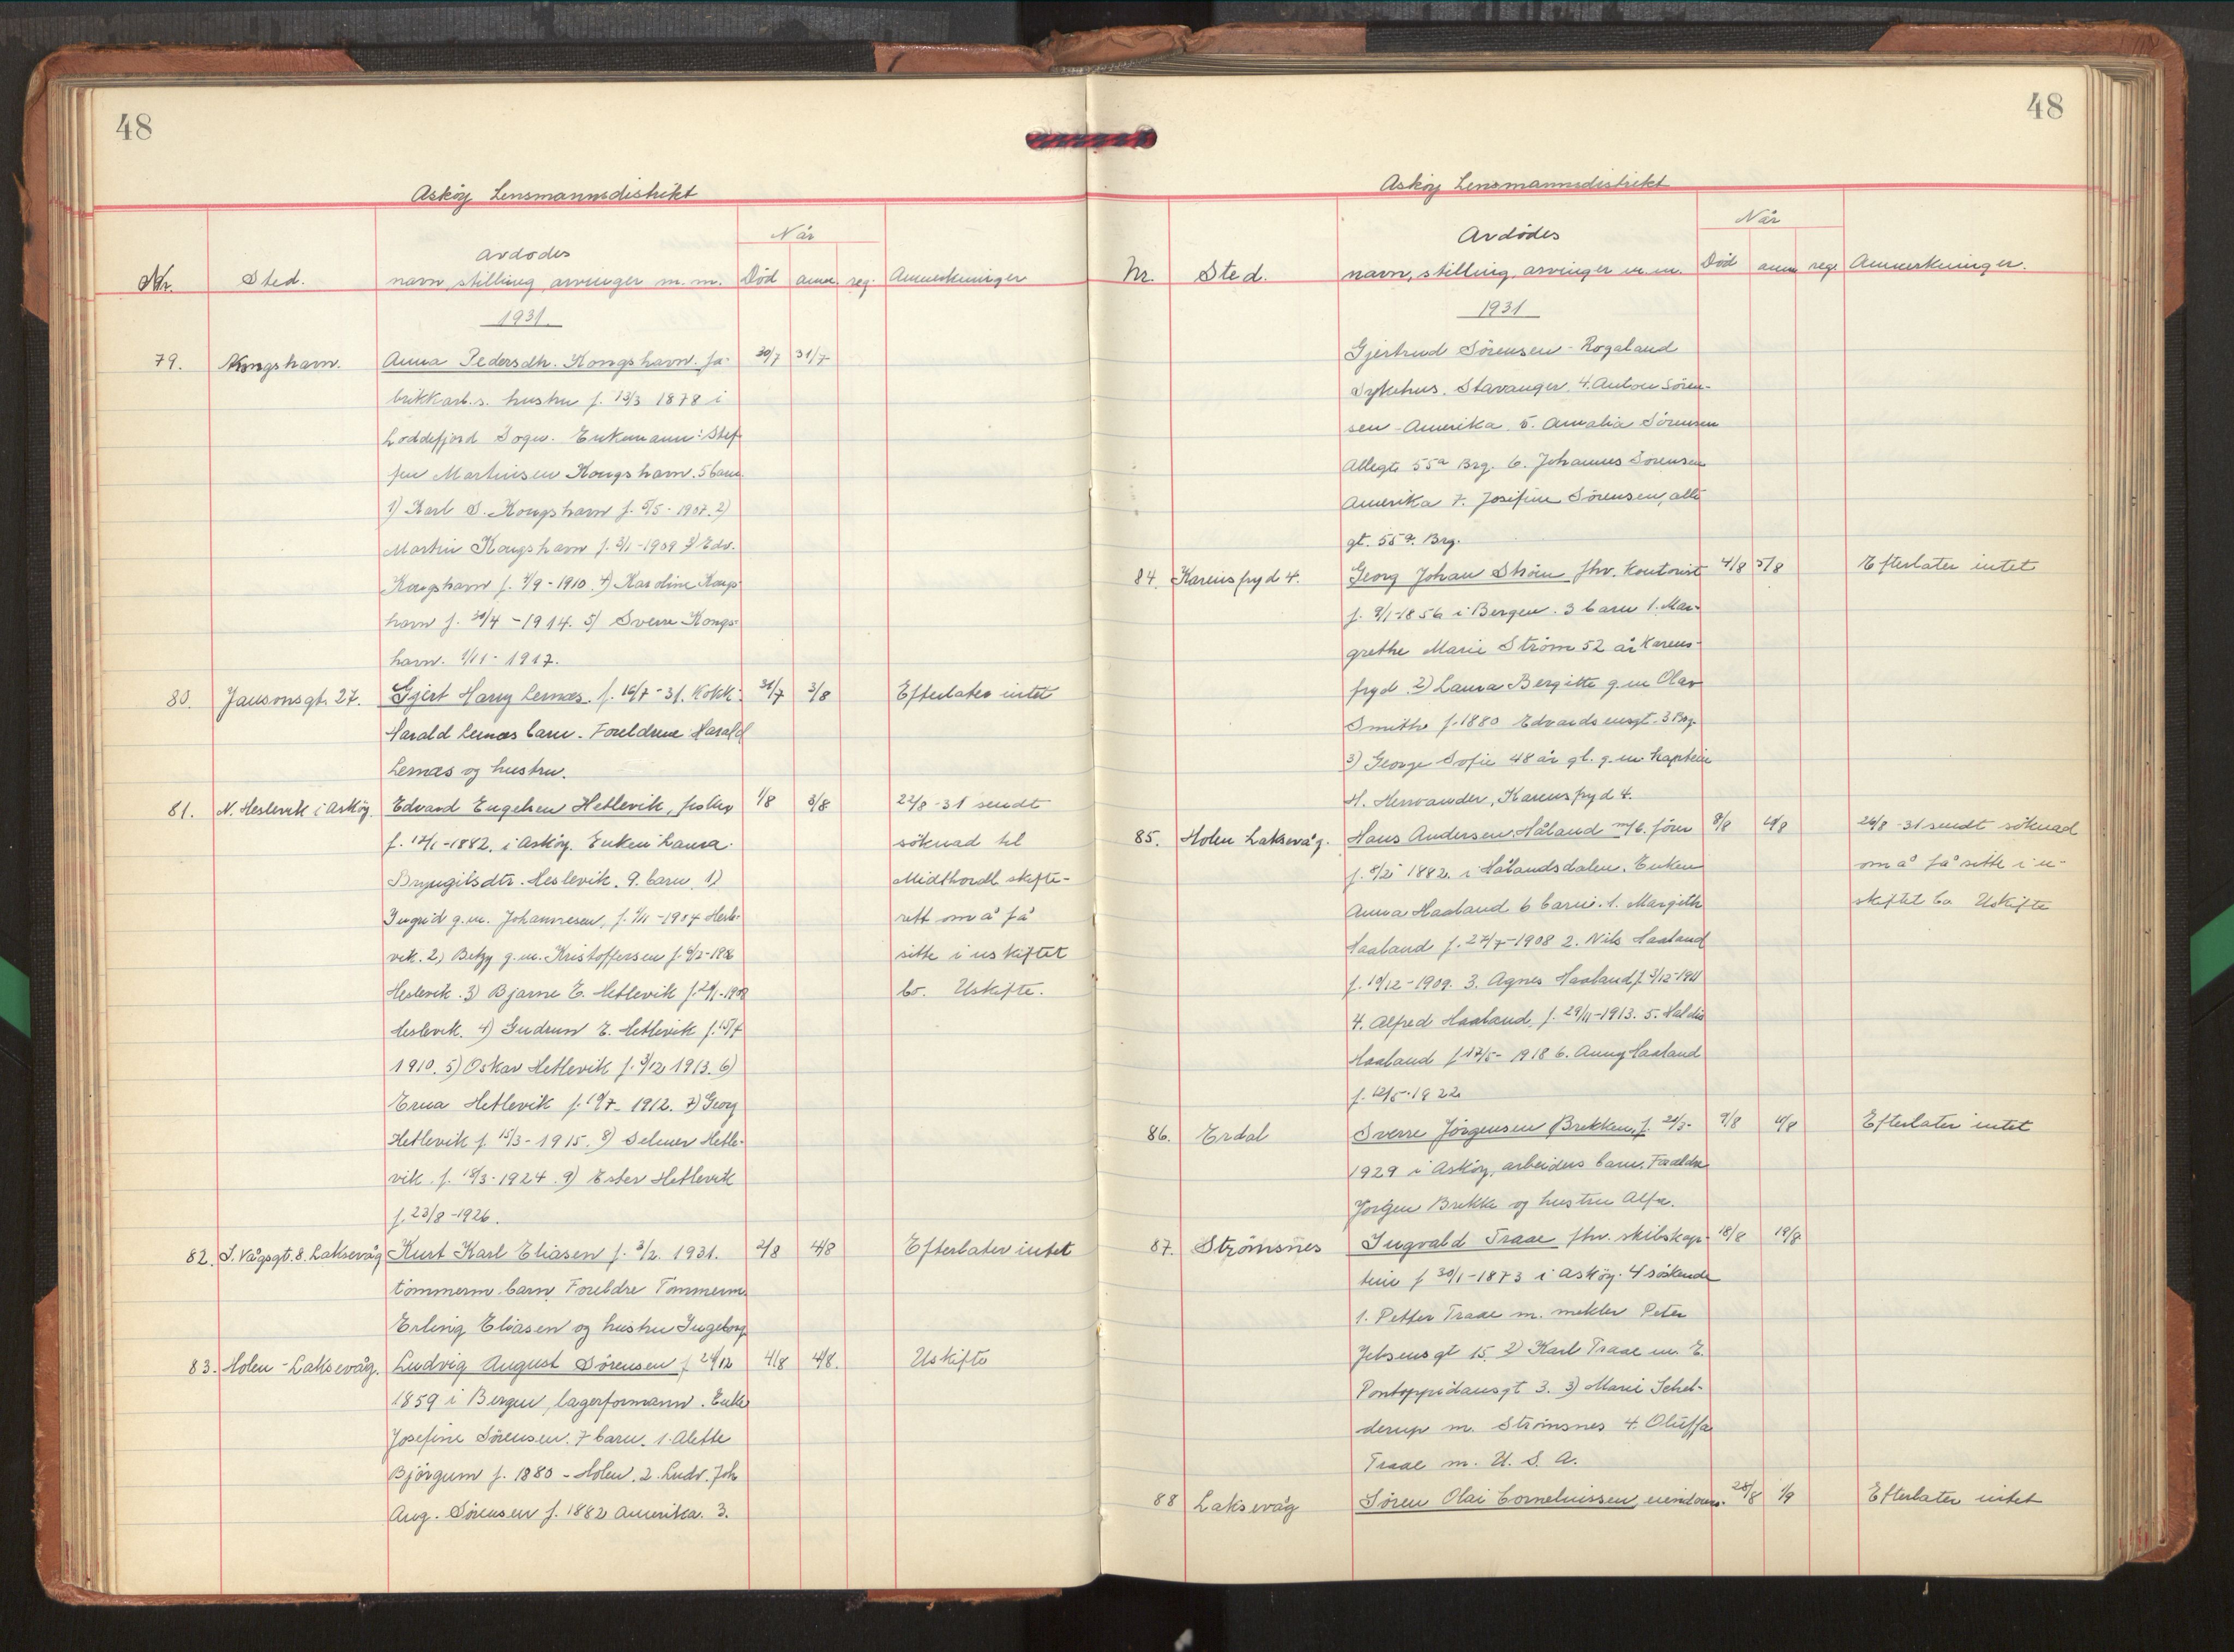 48
Asköy Lensmannsdistrikt
Når
Avdödes
Nr. Sted. navn stilling arvinger m. m. Död anm. reg. Anmerkninger
1931
79. Kongshavn. Anna Pedersdtr. Kongshavn. fa- 30/7 31/7
brikkarb.s. hustru f. 13/3 1878 i
Loddefjord Sogn. Enkemann: Stef-
fen Martinsen Kongshavn. 5 barn
1) Karl S. Kongshavn f. 5/5 - 1907. 2)
Martin Kongshavn f. 3/1 - 1909 3) Edv.
Kongshavn f. 4/9 - 1910. 4) Karoline Kongs-
havn f. 30/4 - 1914. 5) Sverre Kongs-
havn. 1/11 - 1917.
80. Jansonsgt. 27. Gjert Harry Lernæs. f. 16/7 - 31. Kokk 31/7 3/8 Efterlater intet
Harald Lernæs barn. Foreldrene Harald
Lernæs og hustru.
81. N. Heslevik i Asköy. Edvard Engelsen Hetlevik, fisker 1/8 3/8 22/8 - 31 sendt
f. 12/1 - 1882. i Asköy. Enken Laura söknad til
Bryngilsdtr. Heslevik. 9. barn. 1) Midthordl. skifte-
Ingrid g.m. Johannesen, f. 1/11 - 1904 Hesle- rett om å få
vik. 2) Betzy g.m. Kristoffersen f. sitte i uskiftet
Heslevik. 3) Bjarne E. Hetlevik f. 29/1 - 1908 bo. Uskifte.
Heslevik. 4) Gudrun E. Hetlevik f. 15/4
1910. 5) Oskar Hetlevik f. 3/12 1913. 6)
Erna Hetlevik f. 19/7 - 1912. 7) Georg
Hetlevik f. 15/3 - 1915. 8) Selmer Hetle-
vik f. 18/3 - 1924. 9) Ester Hetlevik
f. 23/8 - 1926.
82. S. Vågsgt. 8. Laksevåg Kurt Karl Eliasen f. 3/2. 1931. 2/8 4/8 Efterlater intet
tömmerm. barn Foreldre Tömmerm.
Erling Eliasen og hustru Ingeborg
83. Holen - Laksevåg. Ludvig August Sörensen f. 29/12 4/8 4/8. Uskifte
1859 i Bergen, lagerformann. Enke
Josefine Sörensen. 7 barn. 1. Alette
Björgum f. 1880 - Holen. 2. Ludv. Joh
Aug. Sörensen f. 1882 Amerika. 3.
48
Asköy Lensmannsdistrikt
Når
Avdödes
Nr. Sted. navn, stilling, arvinger m. m. Död anm reg. Anmerkninger.
1931
Gjertrud Sörensen - Rogaland
Sykehus. Stavanger. 4. Anton Sören-
sen - Amerika 5. Amalia Sörensen
Allegt. 55a Brg. 6. Johannes Sörensen
Amerika 7. Josefine Sörensen, alle-
gt. 55a. Brg.
84. Karensfryd 4. Georg Johan Ström fhv. kontorist 4/8 5/8 Efterlater intet
f. 9/1 1856 i Bergen. 3 barn 1. Mar-
grethe Marie Ström 52 år Karens-
fryd. 2) Laura Bergitte g.m Olav
Smith f. 1880 Edvardsensgt. 3 Brg.
3) George Sofie 48 år gl. g.m. Kaptein
H. , Karensfryd 4.
85. Holen Laksevåg. Hans Andersen Håland m/b. förer 8/8 26/8 - 31 sendt söknad
f. 1882. i Hålandsdalen. Enken om å få sitte i u-
Anna Haaland 6 barn. 1. Margith skiftet bo Uskifte
Haaland f. 27/7 - 1908 2. Nils Haaland
f. 19/12 - 1909. 3. Agnes Haaland f. 3/12 - 1911
4. Alfred Haaland, f. 29/11 - 1913. 5. Haldis
Haaland f. 17/5 - 1918 6. Anny Haaland
f. 12/5 - 1922
86. Erdal Sverre Jörgensen Brekken, f. 21/3 - 9/8 11/8 Efterlater intet
1929 i Asköy. arbeiders barn. Foreldre
Jörgen Brekke og hustru Alfa.
87. Strömsnes Ingvald Traae fhv. skibskap- 18/8 19/8
tein f 30/1 - 1873 i Asköy. 4 söskende
1. Petter Traae m. mekler Peter
Jebsens gt 15. 2) Karl Traae m. E.
Pontoppidansgt 3. 3) Marie Schel-
derup m. Strömsnes 4. Oluffa
Traae m. U. S. A.
88 Laksevåg Sören Olai Corneliussen eiendoms- 28/8 1/9 Efterlater intet